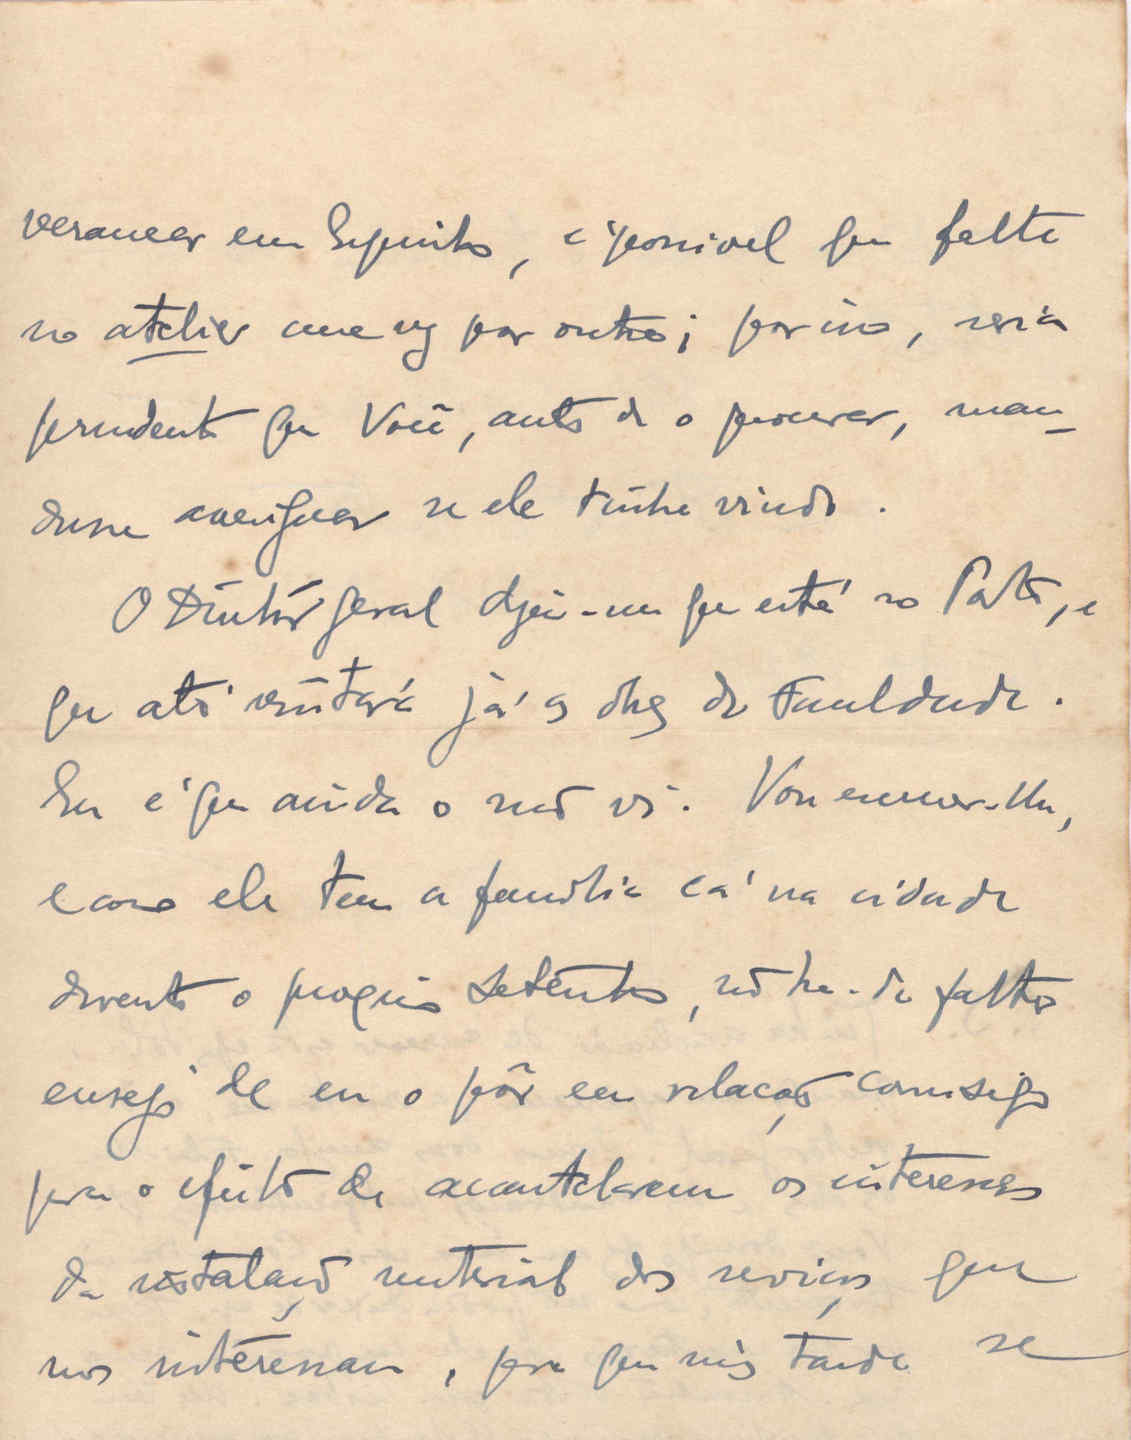 veranear em Espinho, é possivel que falte
no atelier uma vez por outra; por isso, seria
prudente que Você, antes de o procurar, man-
dasse averiguar se ele tinha vindo.
O Diretôr geral dizei-me que está no Porto, e
que até visitará já as obras da Faculdade.
Eu é que ainda o não vi. Vou escrever-lhe,
e como ele tem a familia cá na cidade
durante o proximo Setembro, não ha-de faltar
ensejo de eu o pôr em relação comsigo
para o efeito de acautelarem os interesses
da instalação material dos serviços que
nos interessam, para que mais tarde se